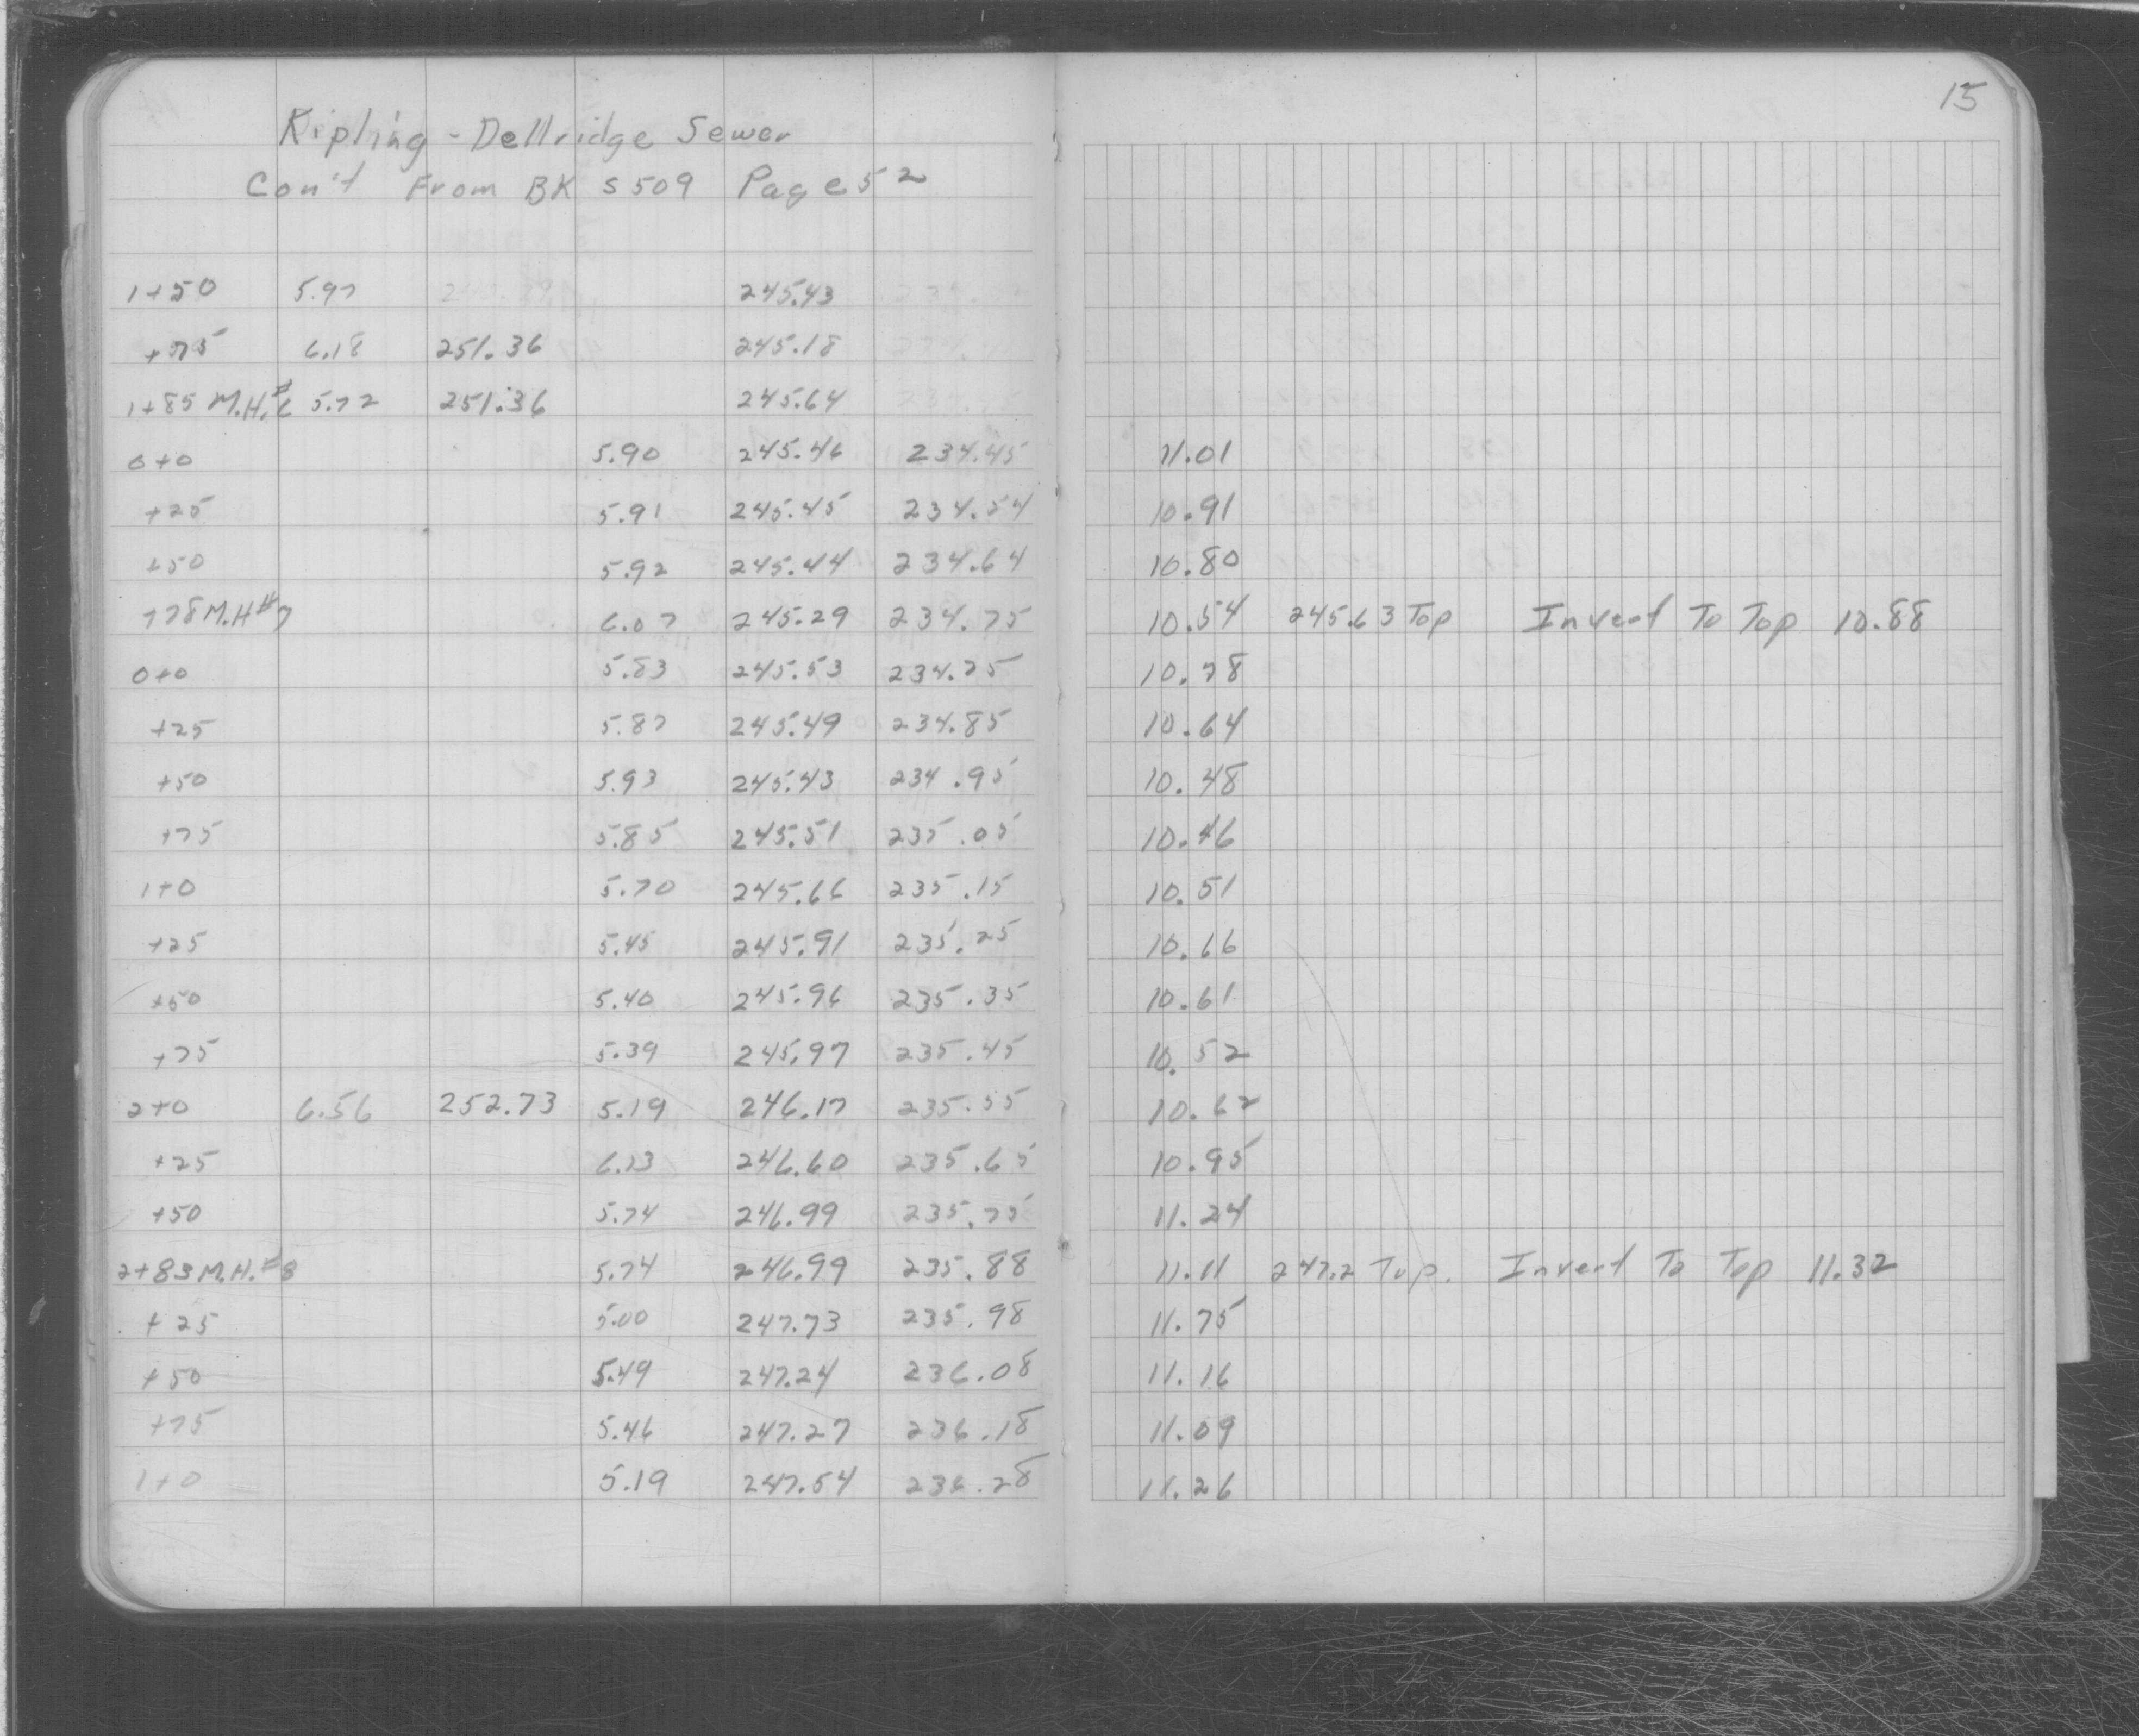 15
Kipling - Dellridge Sewer
Con't From BK S509 Page 52
1+50 5.97 245.43
+75 6.18 251.36 245.18
1+85 M.H.#6 5.72 251.36 245.64
0+0 5.90 245.46 234.45 11.01
+25 5.91 245.45 234.54 10.91
+50 5.92 245.44 234.64 10.80
778 M.H#7 6.07 245.29 234.75 10.54 245.63 Top Invert To Top 10.88
0+0 5.83 245.53 234.75 10.78
+25 5.87 245.49 234.85 10.64
+50 5.93 245.43 234.95 10.48
+75 5.85 245.51 235.05 10.46
1+0 5.70 245.66 235.15 10.51
+25 5.45 245.91 235.25 10.66
+50 5.40 245.96 235.35 10.61
+75 5.39 245.97 235.45 10.52
2+0 6.56 252.73 5.19 246.17 235.55 10.62
+25 6.13 246.60 235.65 10.95
+50 5.74 246.99 235.75 11.24
2+83 M.H.#8 5.74 246.99 235.88 11.11 247.2 Top. Invert To Top 11.32
+25 5.00 247.73 235.98 11.75
+50 5.49 247.24 236.08 11.16
+75 5.46 247.27 236.18 11.09
1+0 5.19 247.54 236.28 11.26